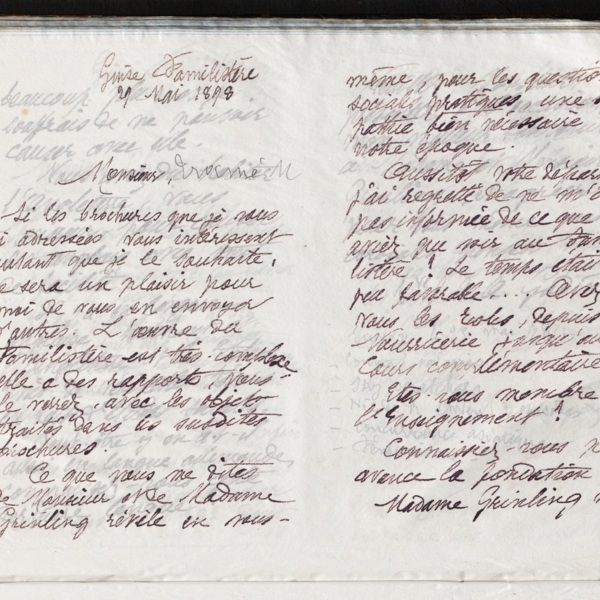 Guise Familistère
29 Mai 1898
Monsieur
Si les brochures que je vous
ai adressées vous intéressent
autant que je le souhaite,
ce sera un plaisir pour
moi de vous en envoyer
d'autres. L'œuvre du
Familistère est très complexe
elle a des rapports, vous
le verrez, avec les objets
traités dans les susdites
brochures.
Ce que vous me dites
de Monsieur et de Madame
Grinling révèle en vous-
même, pour les question
sociales pratiques une
pathie bien nécessaire
notre époque.
Aussitôt votre dépar
j'ai regretté de ne m'ê
pas informée de ce que
aviez pu voir au Fam
listère ! Le temps étai
peu favorable... Avez
vous les Ecoles, depuis
Nourricerie jusqu'au
Cours complémentaire
Etes-vous membre
l'Enseignement ?
Connaissiez-vous
avance la fondation
Madame Grinling